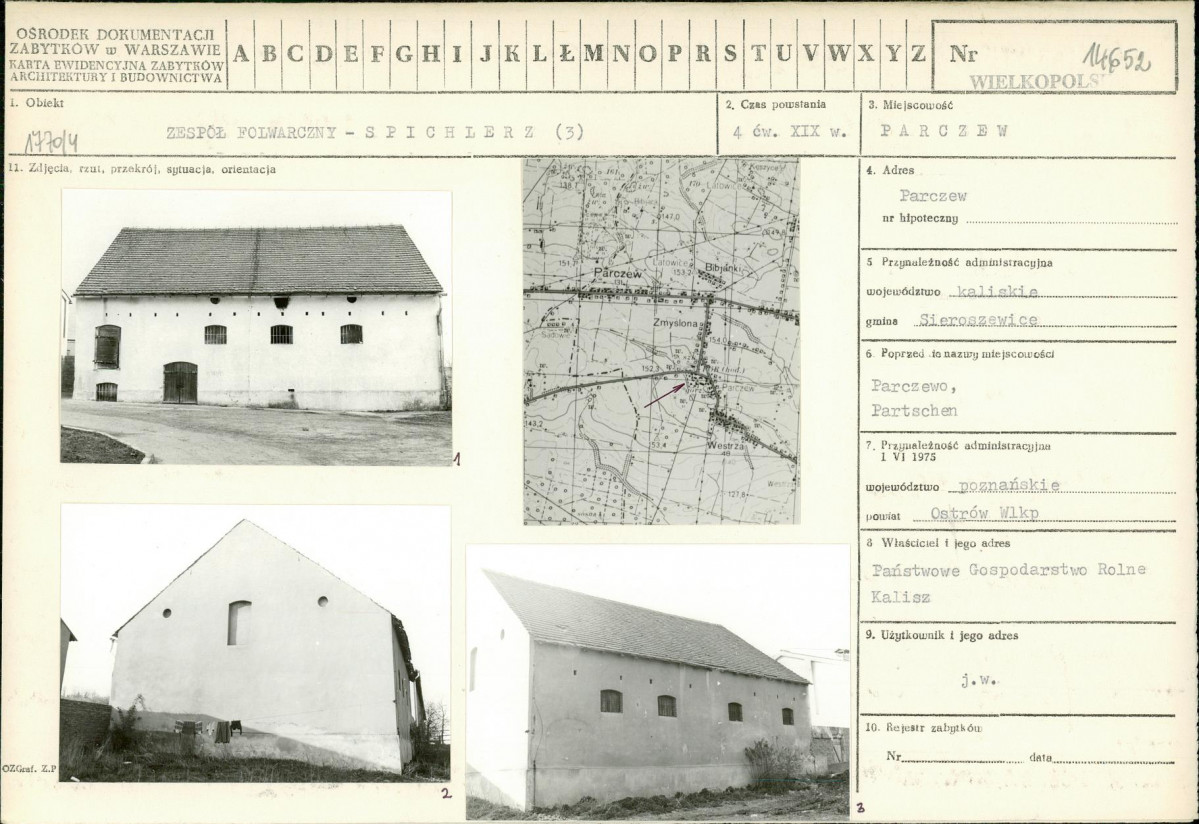 OŚRODEK DOKUMENTACJI
ZABYTKÓW w WARSZAWIE
KARTA EWIDENCYJNA ZABYTKÓW
ARCHITEKTURY I BUDOWNICTWA
A B C D E F G H I J K L Ł M N O P R S T U V W X Y Z
Nr 14652
WIELKOPOLS
1. Obiekt
1770/4
ZESPÓŁ FOLWARCZNY - SPICHLERZ (3)
2. Czas powstania
4 ćw. XIX w.
3. Miejscowość
PARCZEW
11. Zdjęcia, rzut, przekrój, sytuacja, orientacja
4. Adres
Parczew
nr hipoteczny
5 Przynależność administracyjna
województwo kaliskie
gmina Sieroszewice
6. Poprzednie nazwy miejscowości
Parczewo,
Partschen
7. Przynależność administracyjna
1 VI 1975
województwo poznańskie
powiat Ostrów Wlkp
8 Właściciel i jego adres
Państwowe Gospodarstwo Rolne
Kalisz
9. Użytkownik i jego adres
j.w.
10. Rejestr zabytków
Nr data
Parczew
Latowice
Bibjanki
Zmyślona
Parczew
Westrza
147,0
152,3
143,2
127,8
1
2
3
OZGraf. Z.P